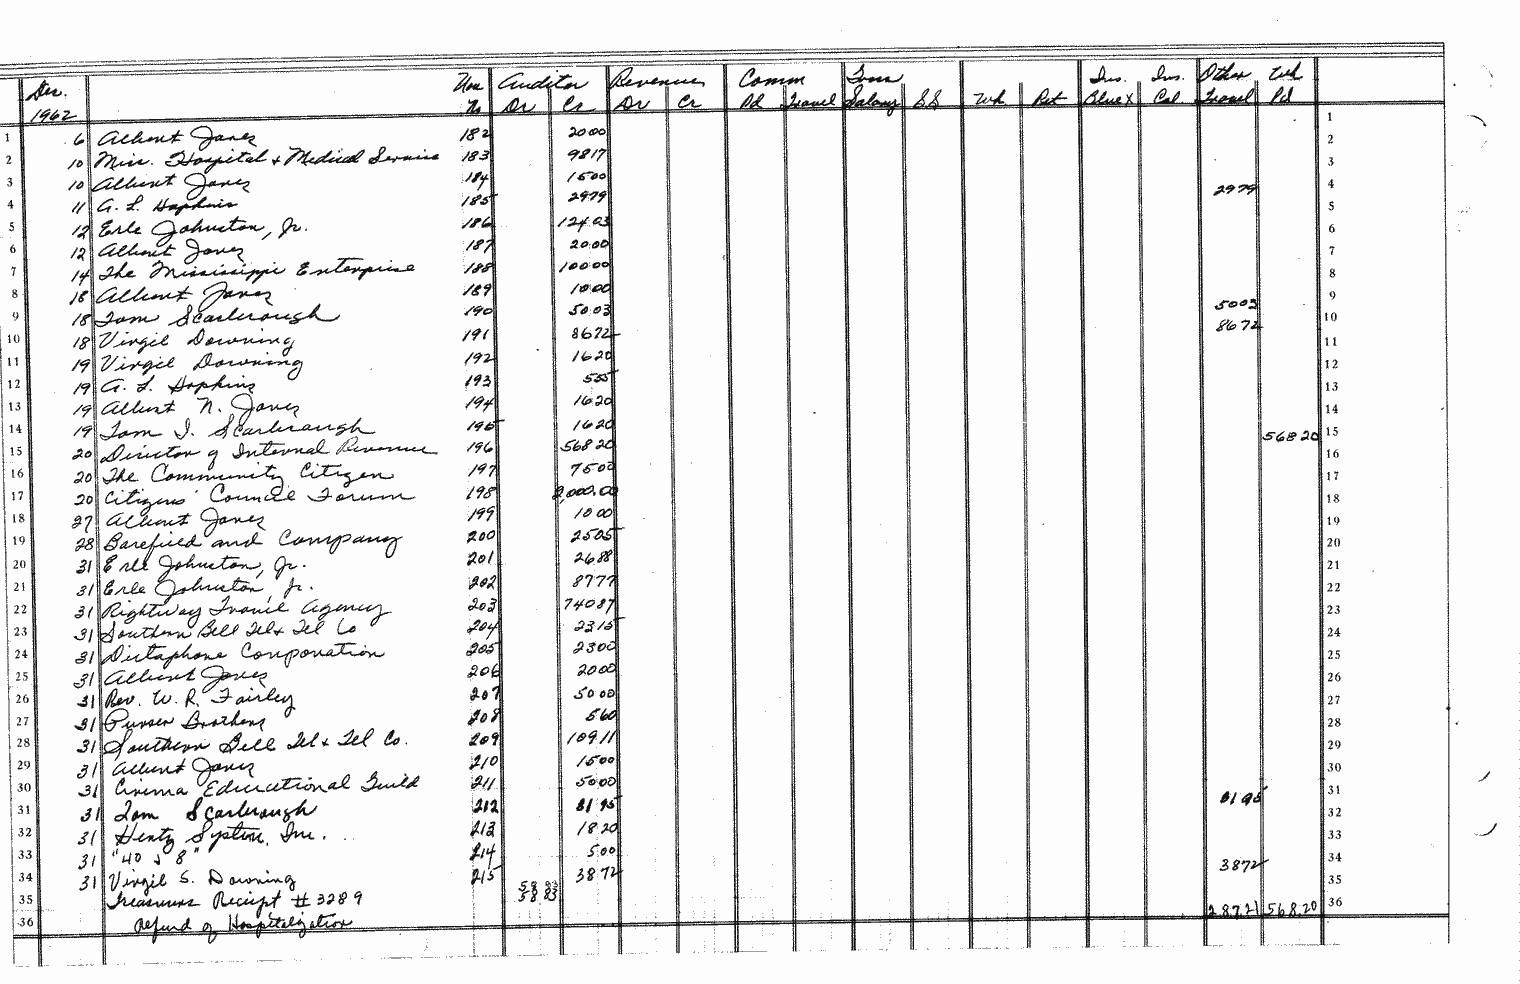 Dec. 1962 Vou No Auditor Dr Cr Revenue Dr Cr Comm Pd Travel Gross Salary SS Wh Ret Ins. Blue X Ins. Col. Other Travel Wh Pd
1 6 Albert Jones 182 20 00 1
2 10 Miss. Hospital & Medical Service 183 98 17 2
3 10 Albert Jones 184 15 00 3
4 11 A. L. Hopkins 185 29 79 29 79 4
5 12 Erle Johnston, Jr. 186 124 03 5
6 12 Albert Jones 187 20 00 6
7 14 The Mississippi Enterprise 188 100 00 7
8 18 Albert Jones 189 10 00 8
9 18 Tom Scarbrough 190 50 03 50 03 9
10 18 Virgil Downing 191 86 72 86 72 10
11 19 Virgil Downing 192 16 20 11
12 19 A. L. Hopkins 193 5 55 12
13 19 Albert N. Jones 194 16 20 13
14 19 Tom J. Scarbrough 195 16 20 14
15 20 Director of Internal Revenue 196 568 20 568 20 15
16 20 The Community Citizen 197 75 00 16
17 20 Citizens' Council Forum 198 2,000.00 17
18 27 Albert Jones 199 10 00 18
19 28 Barefield and Company 200 25 05 19
20 31 Erle Johnston, Jr. 201 26 88 20
21 31 Erle Johnston, Jr. 202 87 77 21
22 31 Rightway Travel Agency 203 740 87 22
23 31 Southern Bell Tel & Tel Co 204 23 15 23
24 31 Dictaphone Corporation 205 23 00 24
25 31 Albert Jones 206 20 00 25
26 31 Rev. W. R. Fairley 207 50 00 26
27 31 Purser Brothers 208 5 60 27
28 31 Southern Bell Tel & Tel Co. 209 109 11 28
29 31 Albert Jones 210 15 00 29
30 31 Cinema Educational Guild 211 50 00 30
31 31 Tom Scarbrough 212 81 95 81 95 31
32 31 Hentz System, Inc. 213 18 20 32
33 31 "40 & 8" 214 5 00 33
34 31 Virgil S. Downing 215 38 72 38 72 34
35 Treasurers Receipt # 3289 58 83 58 83 35
36 Refund of Hospitalization 287.21 568.20 36